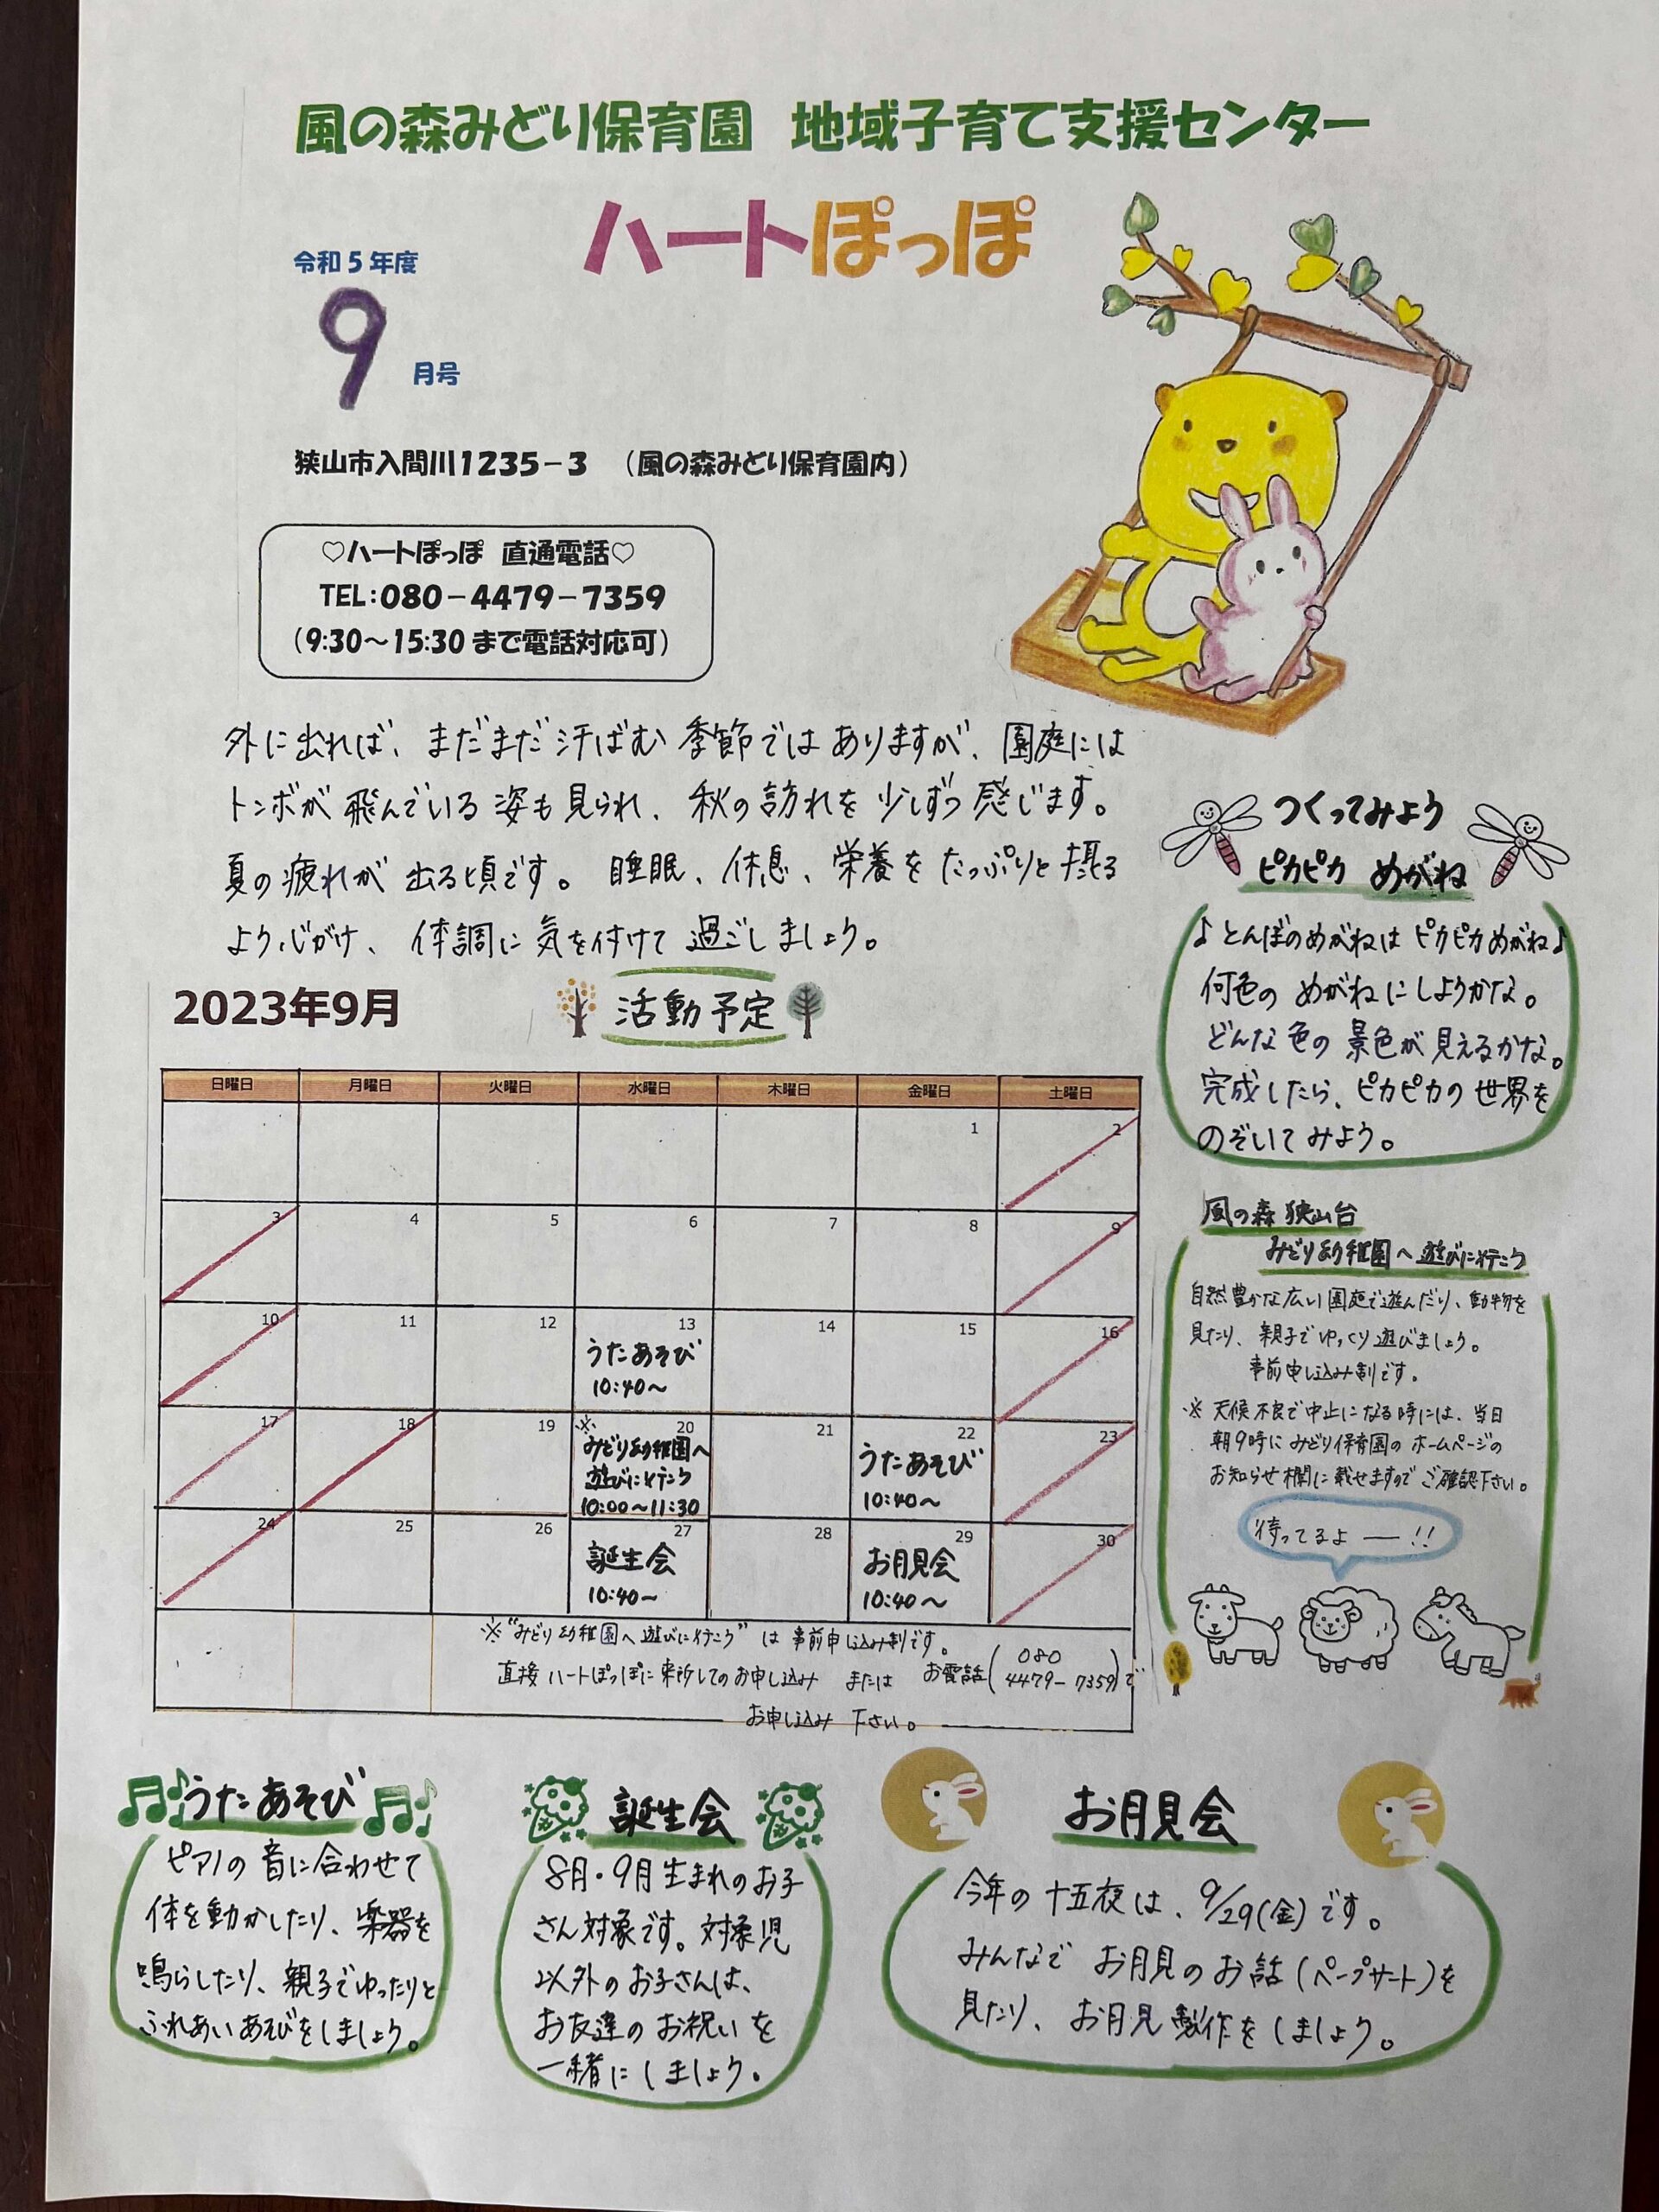 風の森みどり保育園 地域子育て支援センター
ハートぽっぽ
令和5年度
9
月号
狭山市入間川1235-3 (風の森みどり保育園内)
♡ハートぽっぽ 直通電話♡
TEL:080-4479-7359
(9:30～15:30まで電話対応可)
外に出れば、まだまだ汗ばむ季節ではありますが、園庭には
トンボが飛んでいる姿も見られ、秋の訪れを少しずつ感じます。
夏の疲れが出る頃です。睡眠、休息、栄養をたっぷりと摂る
よう心がけ、体調に気を付けて過ごしましょう。
つくってみよう
ピカピカ めがね
♪とんぼのめがねはピカピカめがね♪
何色のめがねにしようかな。
どんな色の景色が見えるかな。
完成したら、ピカピカの世界を
のぞいてみよう。
2023年9月
活動予定
日曜日 月曜日 火曜日 水曜日 木曜日 金曜日 土曜日
1 2
3 4 5 6 7 8 9
10 11 12 13 14 15 16
うたあそび
10:40～
17 18 19 ※ 20 21 22 23
みどり幼稚園へ
遊びに行こう
10:00～11:30
うたあそび
10:40～
24 25 26 27 28 29 30
誕生会
10:40～
お月見会
10:40～
※"みどり幼稚園へ遊びに行こう"は事前申し込み制です。
直接ハートぽっぽに来所してのお申し込み または お電話(080 4479-7359)で
お申し込み下さい。
風の森 狭山台
みどり幼稚園へ遊びに行こう
自然豊かな広い園庭で遊んだり、動物を
見たり、親子でゆっくり遊びましょう。
事前申し込み制です。
※天候不良で中止になる時には、当日
朝9時にみどり保育園のホームページの
お知らせ欄に載せますのでご確認下さい。
待ってるよー!!
うたあそび
ピアノの音に合わせて
体を動かしたり、楽器を
鳴らしたり、親子でゆったりと
ふれあいあそびをしましょう。
誕生会
8月・9月生まれのお子
さん対象です。対象児
以外のお子さんは、
お友達のお祝いを
一緒にしましょう。
お月見会
今年の十五夜は、9/29(金)です。
みんなでお月見のお話(ペープサート)を
見たり、お月見製作をしましょう。